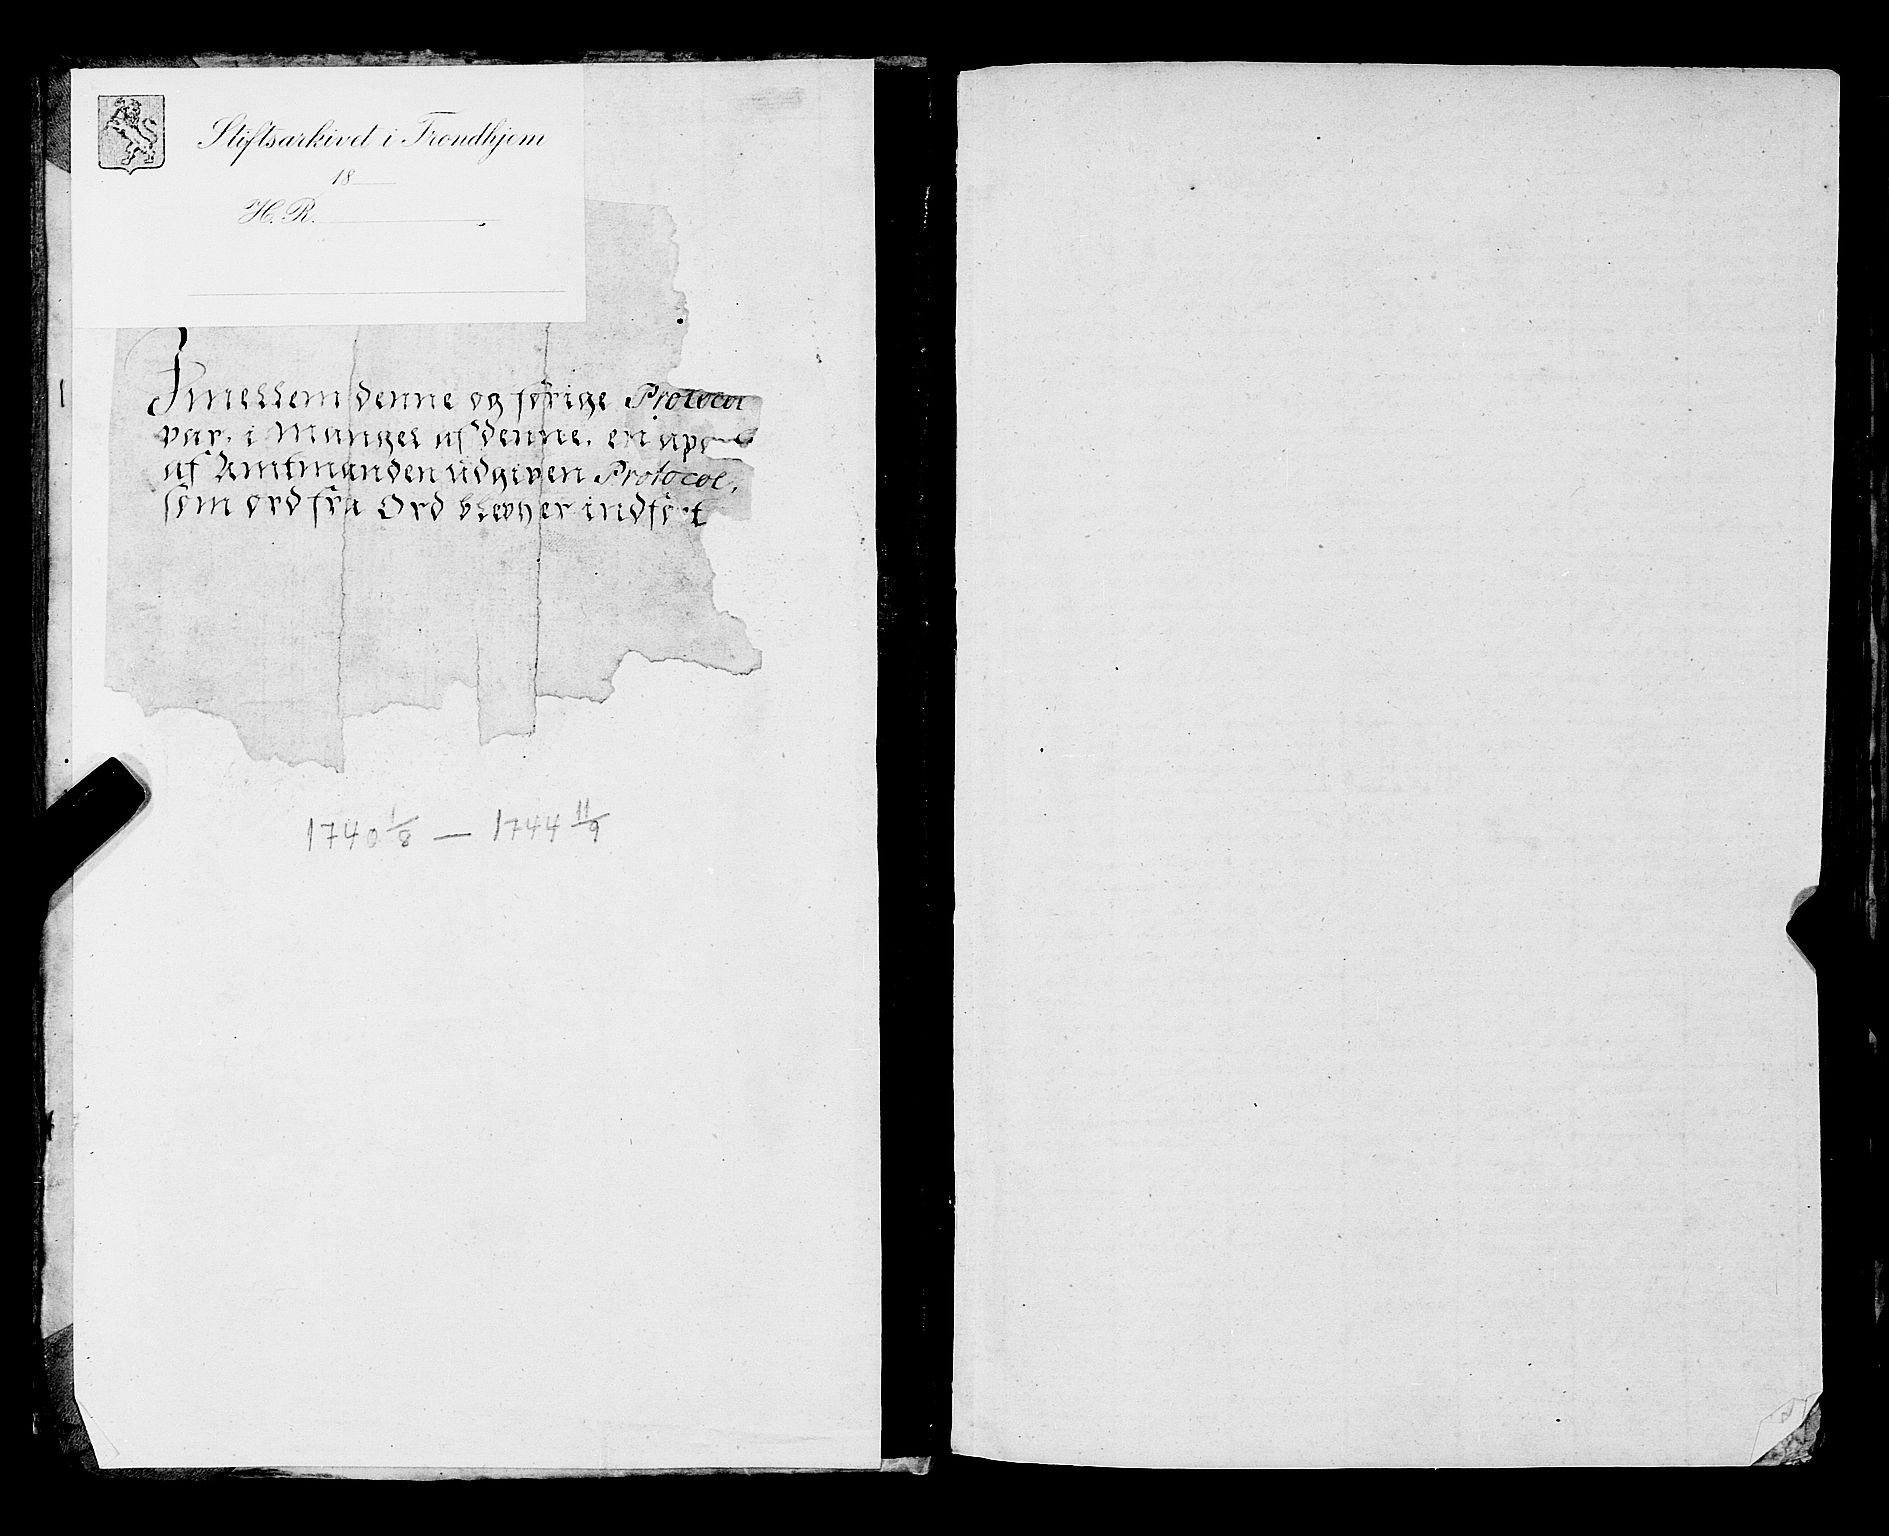 Stiftsarkivet i Trondhjem
18
H. R.
Imellem denne og forige Protocol
var, i Mangel af denne, en
af Amtmanden udgiven Protocol,
som ord fra Ord blev her indført
1740 1/8 — 1744 11/9